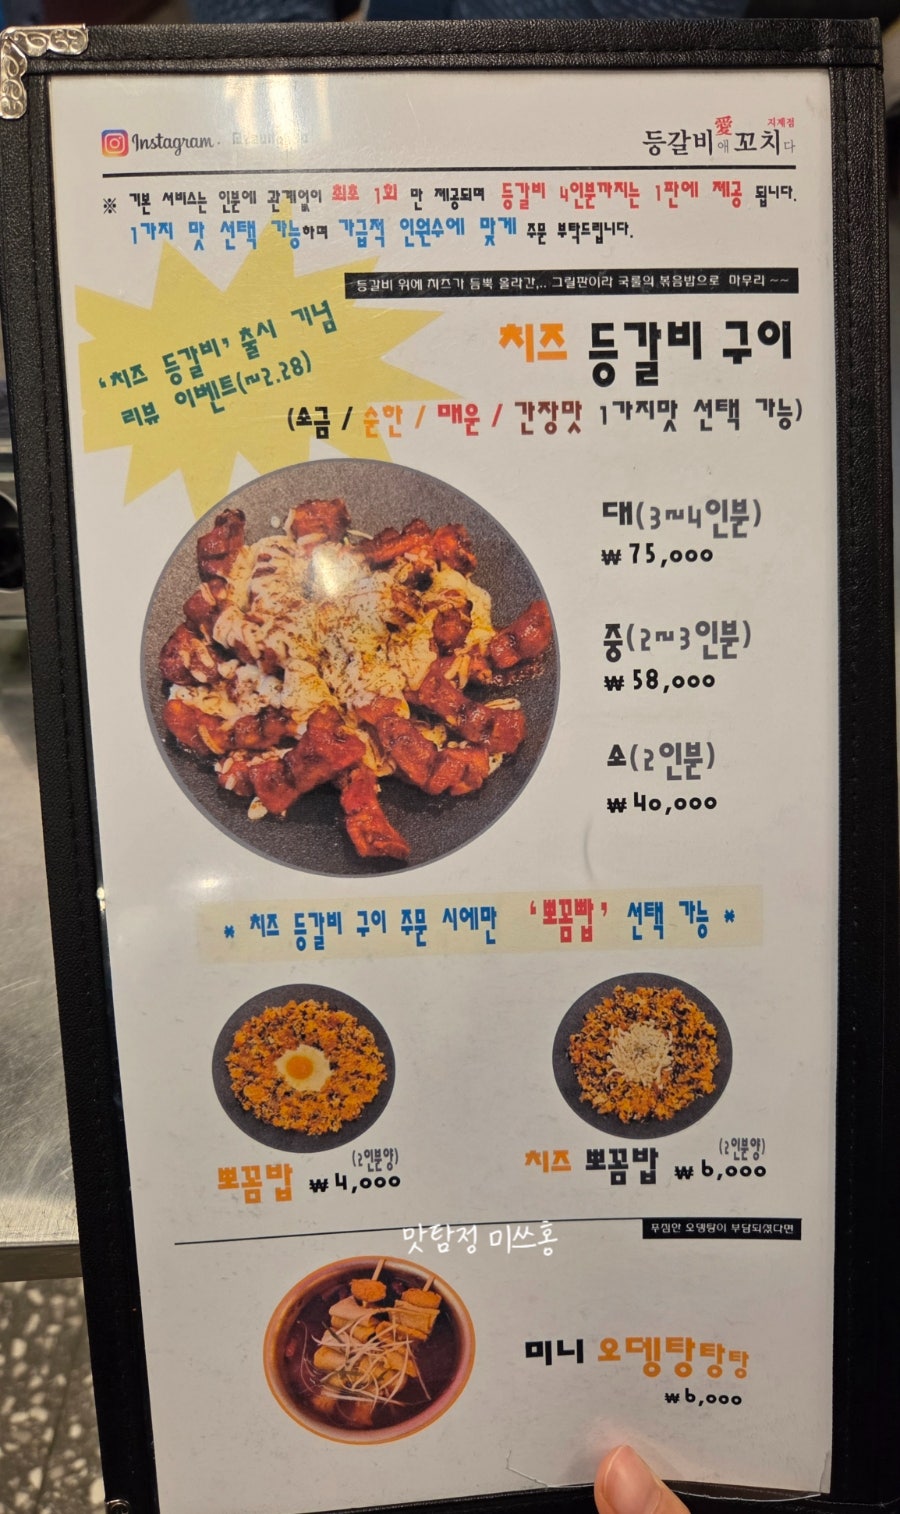 Instagram.
지제점
등갈비愛애 꼬치다
※ 기본 서비스는 인분에 관계없이 최초 1회 만 제공되며 등갈비 4인분까지는 1판에 제공 됩니다.
1가지 맛 선택 가능하며 가급적 인원수에 맞게 주문 부탁드립니다.
등갈비 위에 치즈가 듬뿍 올라간,.. 그릴판이라 국룰의 볶음밥으로 마무리 ~~
'치즈 등갈비' 출시 기념
리뷰 이벤트(~2.28)
치즈 등갈비 구이
(소금 / 순한 / 매운 / 간장맛 1가지맛 선택 가능)
대(3~4인분)
₩ 75,000
중(2~3인분)
₩ 58,000
소(2인분)
₩ 40,000
* 치즈 등갈비 구이 주문 시에만 '뽀꼼밥' 선택 가능 *
(2인분양)
뽀꼼밥 ₩ 4,000
(2인분양)
치즈 뽀꼼밥 ₩ 6,000
맛탐정 미쓰홍
푸짐한 오뎅탕이 부담되셨다면
미니 오뎅탕탕탕
₩ 6,000